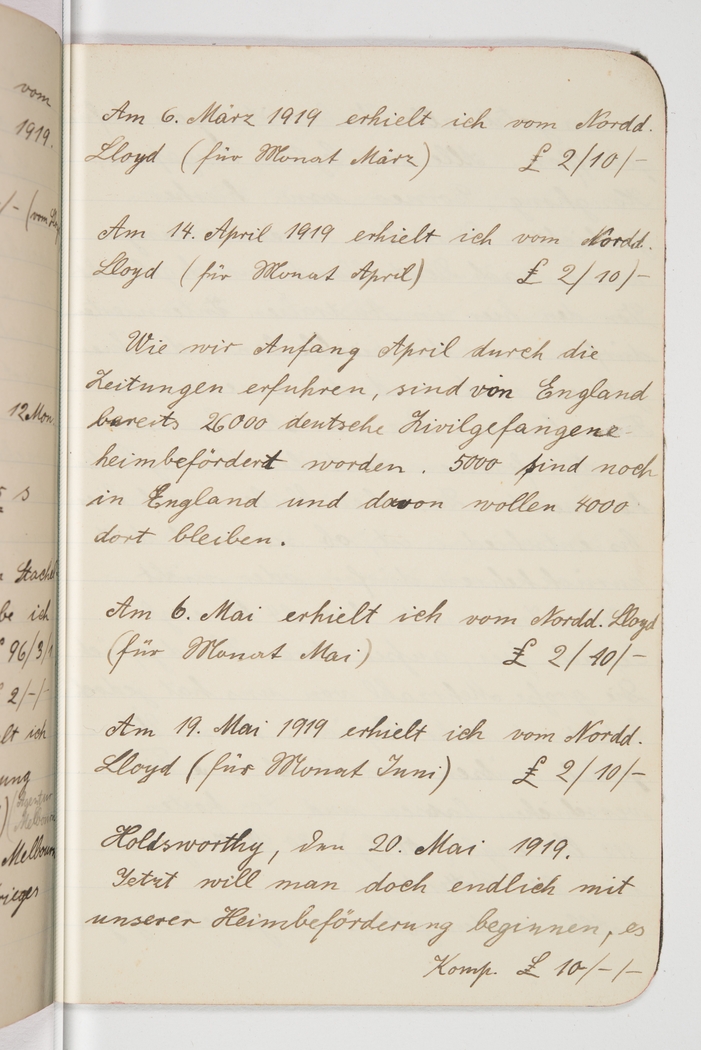 vom
1919.
/- (vom
12 Mon
s
Stachel
be ich
96/3/
£ 2/-/-
lt ich
ung
(Agentur
Melbourne
Melbourn
rieges
Am 6. März 1919 erhielt ich vom Nordd.
Lloyd (für Monat März) £ 2/10/-
Am 14. April 1919 erhielt ich vom Nordd.
Lloyd (für Monat April) £ 2/10/-
Wie wir Anfang April durch die
Zeitungen erfuhren, sind von England
bereits 26000 deutsche Zivilgefangene
heimbefördert worden. 5000 sind noch
in England und davon wollen 4000
dort bleiben.
Am 6. Mai erhielt ich vom Nordd. Lloyd
(für Monat Mai) £ 2/10/-
Am 19. Mai 1919 erhielt ich vom Nordd.
Lloyd (für Monat Juni) £ 2/10/-
Holdsworthy, den 20. Mai 1919.
Jetzt will man doch endlich mit
unserer Heimbeförderung beginnen, es
Komp. £ 10/-/-